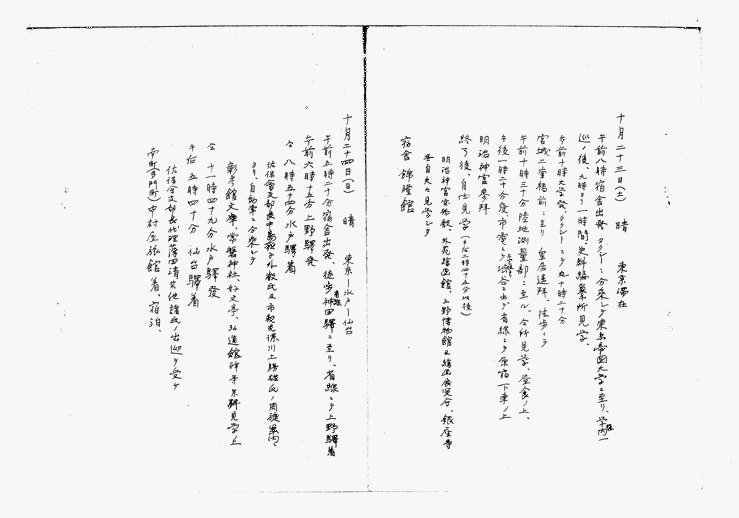 十月二十三日(土) 晴 東京滞在
午前八時宿舎出発 タクシーニ分乗シテ東京帝国大学ニ至リ、学内一
巡ノ後、九時ヨリ一時間、史料編纂所見学、
午前十時大学発、タクシーニテ 十時二十分
宮城二重橋前ニ至リ 皇居遥拝、徒歩ニテ
午前十時三十分 陸地測量部ニ至ル、仝所見学、昼食ノ上、
午後一時二十分発、市電ニテ 渋谷ニ出デ 省線ニテ 原宿下車ノ上
明治神宮参拝
終了後、自由見学(午后二時四十五分以後)
明治神宮宝物殿、外苑絵画館、上野博物館及絵画展覧会、銀座等
各自夫々見学シタ
宿舎 錦隆館
十月二十四日(日) 晴 東京―水戸―仙台
午前五時二十分宿舎出発、徒歩神田駅ニ至リ、省線ニテ上野駅着
午前六時十五分 上野駅発
仝 八時五十四分 水戸驛着
佐保会支部長 外数氏及市 深川 氏ノ 案内、
ヨリ、自動車ニ分乗シテ
彰考館文庫、常磐神社、好文亭、弘道館 等 見学ノ上
仝 十一時四十九分水戸驛発
午后 五時四十分 仙台驛着
佐保会支部長代理 其他諸氏ノ出迎ヲ受ケ
南町 中村屋旅館着、宿泊、